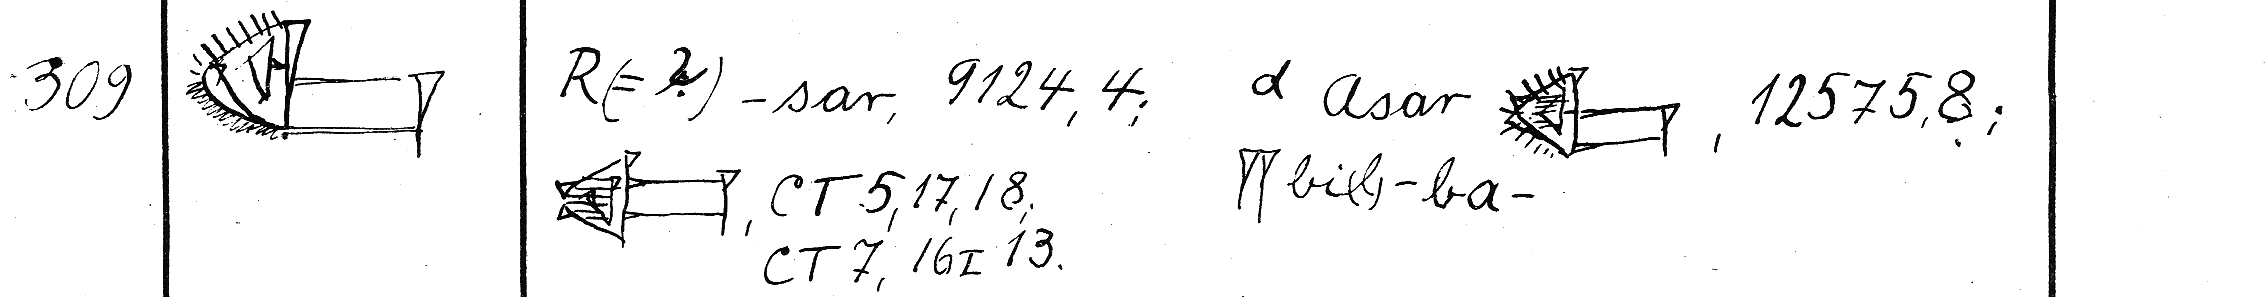 309 R(=?) -sar, 9124, 4; d Asar , 12575, 8;
, CT 5, 17, 18; bi(l)-ba-
CT 7, 16 I 13.